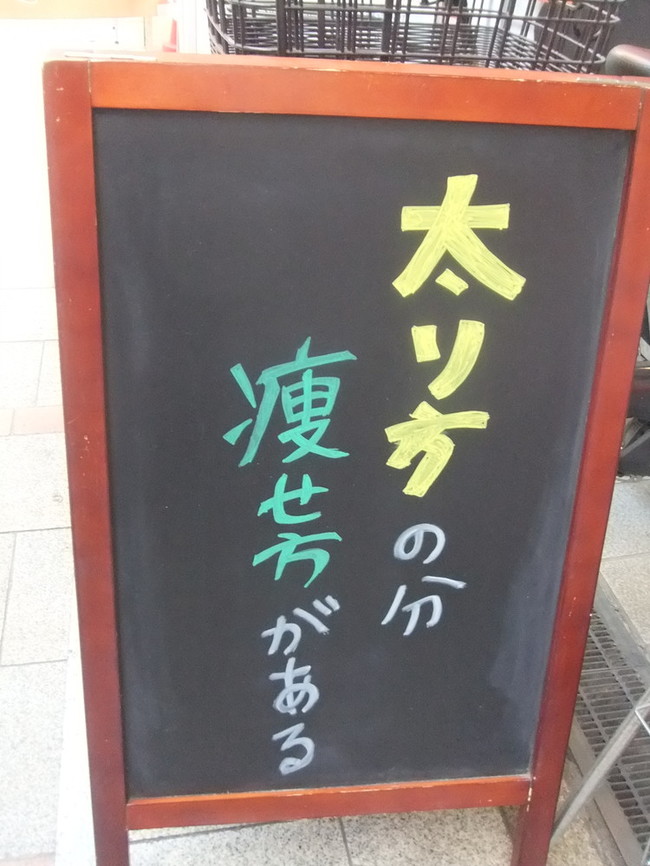 太り方の分
痩せ方がある